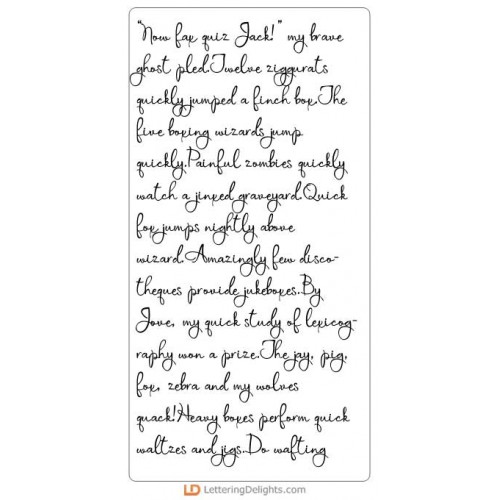 "Now fax quiz Jack!" my brave
ghost pled.Twelve ziggurats
quickly jumped a finch box.The
five boxing wizards jump
quickly.Painful zombies quickly
watch a jinxed graveyard.Quick
fox jumps nightly above
wizard.Amazingly few disco-
theques provide jukeboxes..By
Jove, my quick study of lexicog-
raphy won a prize.The jay, pig,
fox, zebra and my wolves
quack!Heavy boxes perform quick
waltzes and jigs..Do wafting
LD LetteringDelights.com